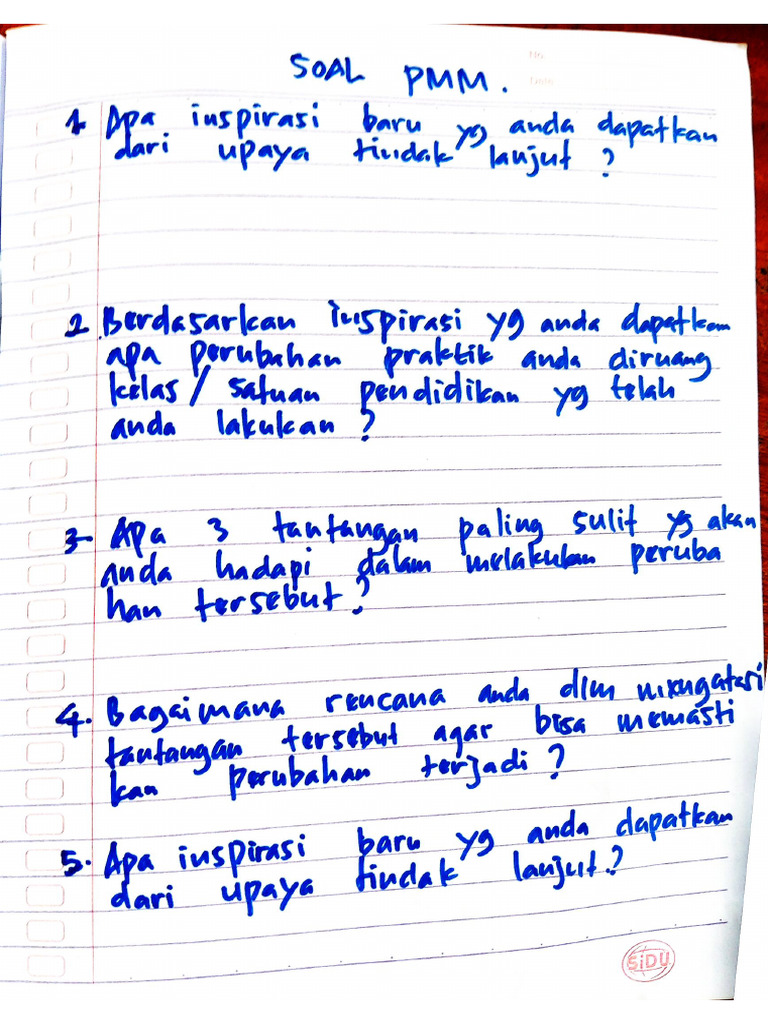 SOAL PMM.
1. Apa inspirasi baru yg anda dapatkan
dari upaya tindak lanjut ?
2. Berdasarkan inspirasi yg anda dapatkan
apa perubahan praktik anda diruang
kelas / satuan pendidikan yg telah
anda lakukan ?
3- Apa 3 tantangan paling sulit yg akan
anda hadapi dalam melakukan peruba
han tersebut ?
4. Bagaimana rencana anda dlm mengatasi
tantangan tersebut agar bisa memasti
kan perubahan terjadi ?
5. Apa inspirasi baru yg anda dapatkan
dari upaya tindak lanjut.?
SiDU